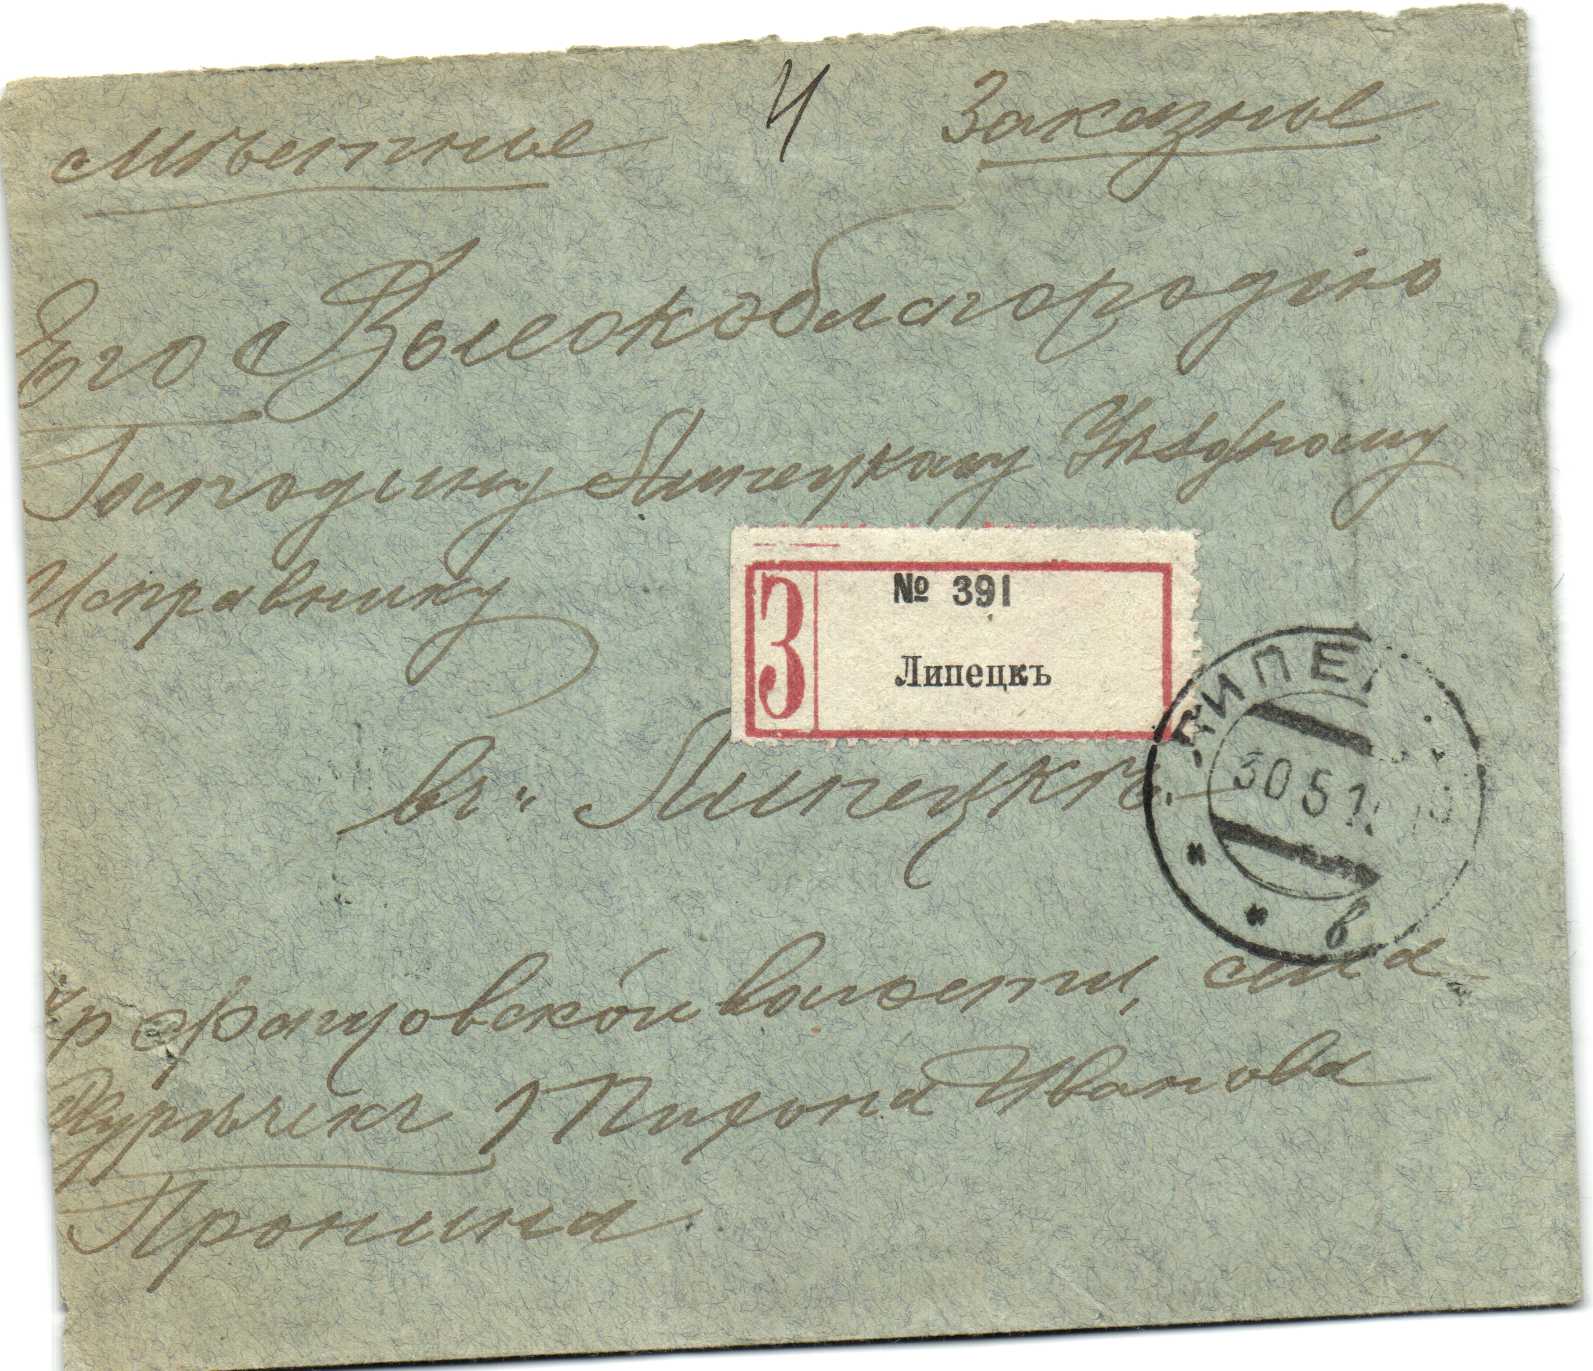 Мѣстное 4 Заказное
Его Высокоблагородію
Господину Липецкому Уѣздному
Исправнику
З № 391
Липецкъ
въ Липецкѣ.
ЛИПЕ
30 5 1
в
Кр Фащовской волости, села
Курѣчекъ Тихона Иванова
Пронина